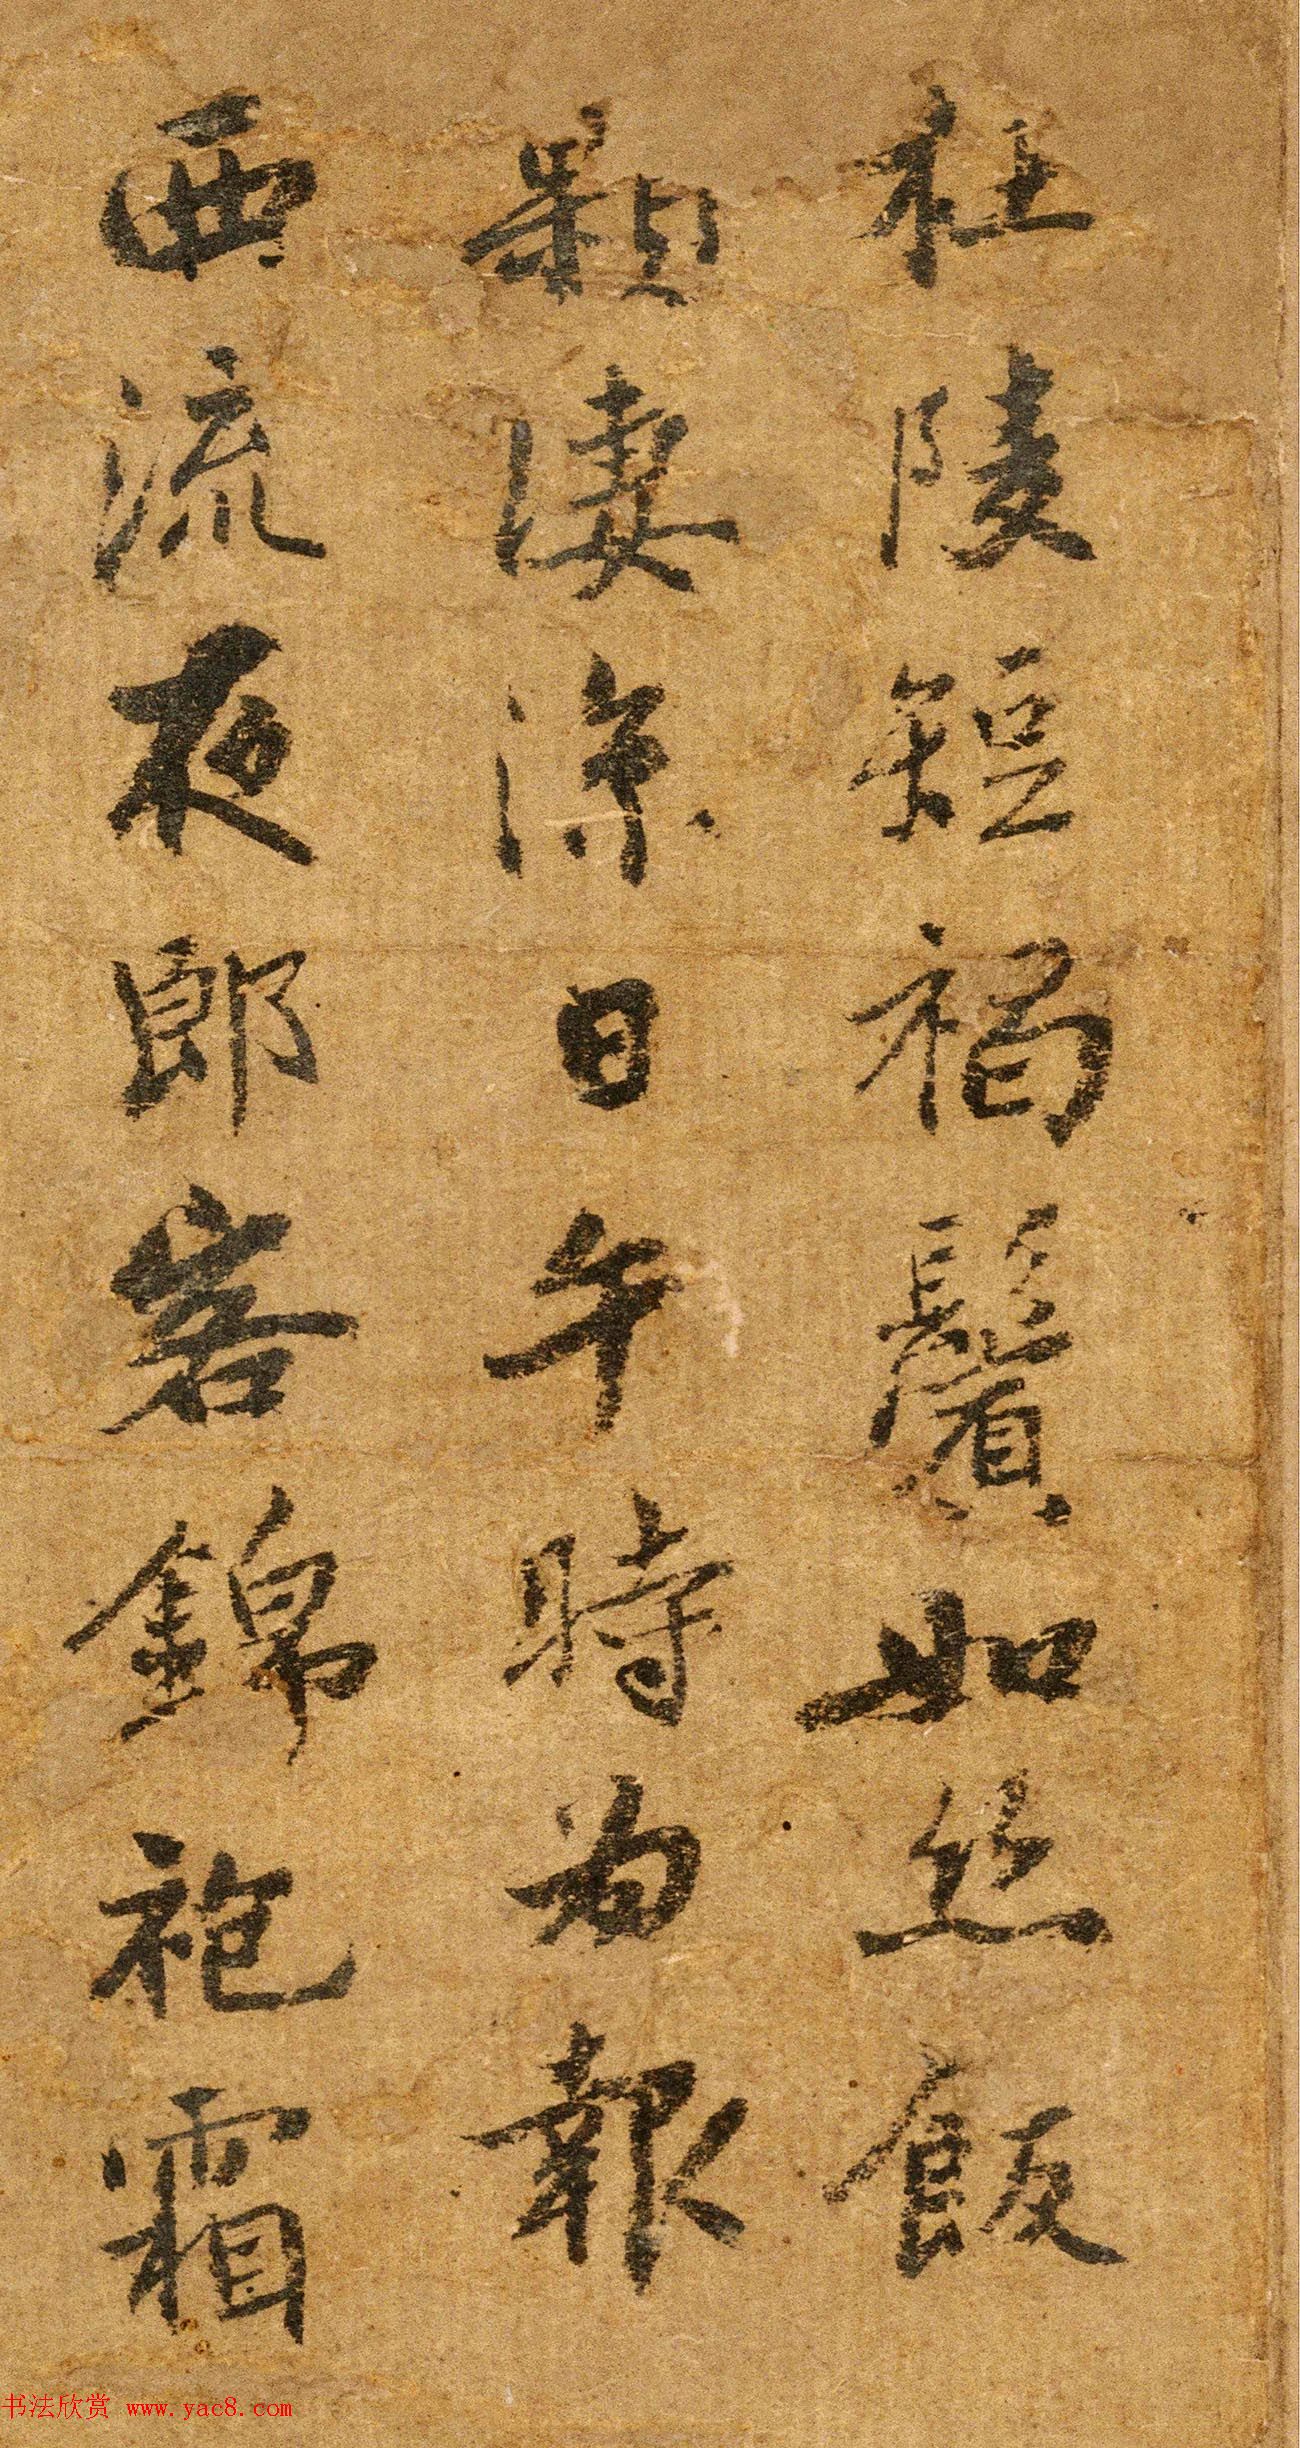 杜陵短褐鬢如絲飯
顆淒涼日午時為報
西流夜郎客錦袍霜
书法欣赏 www.yac8.com